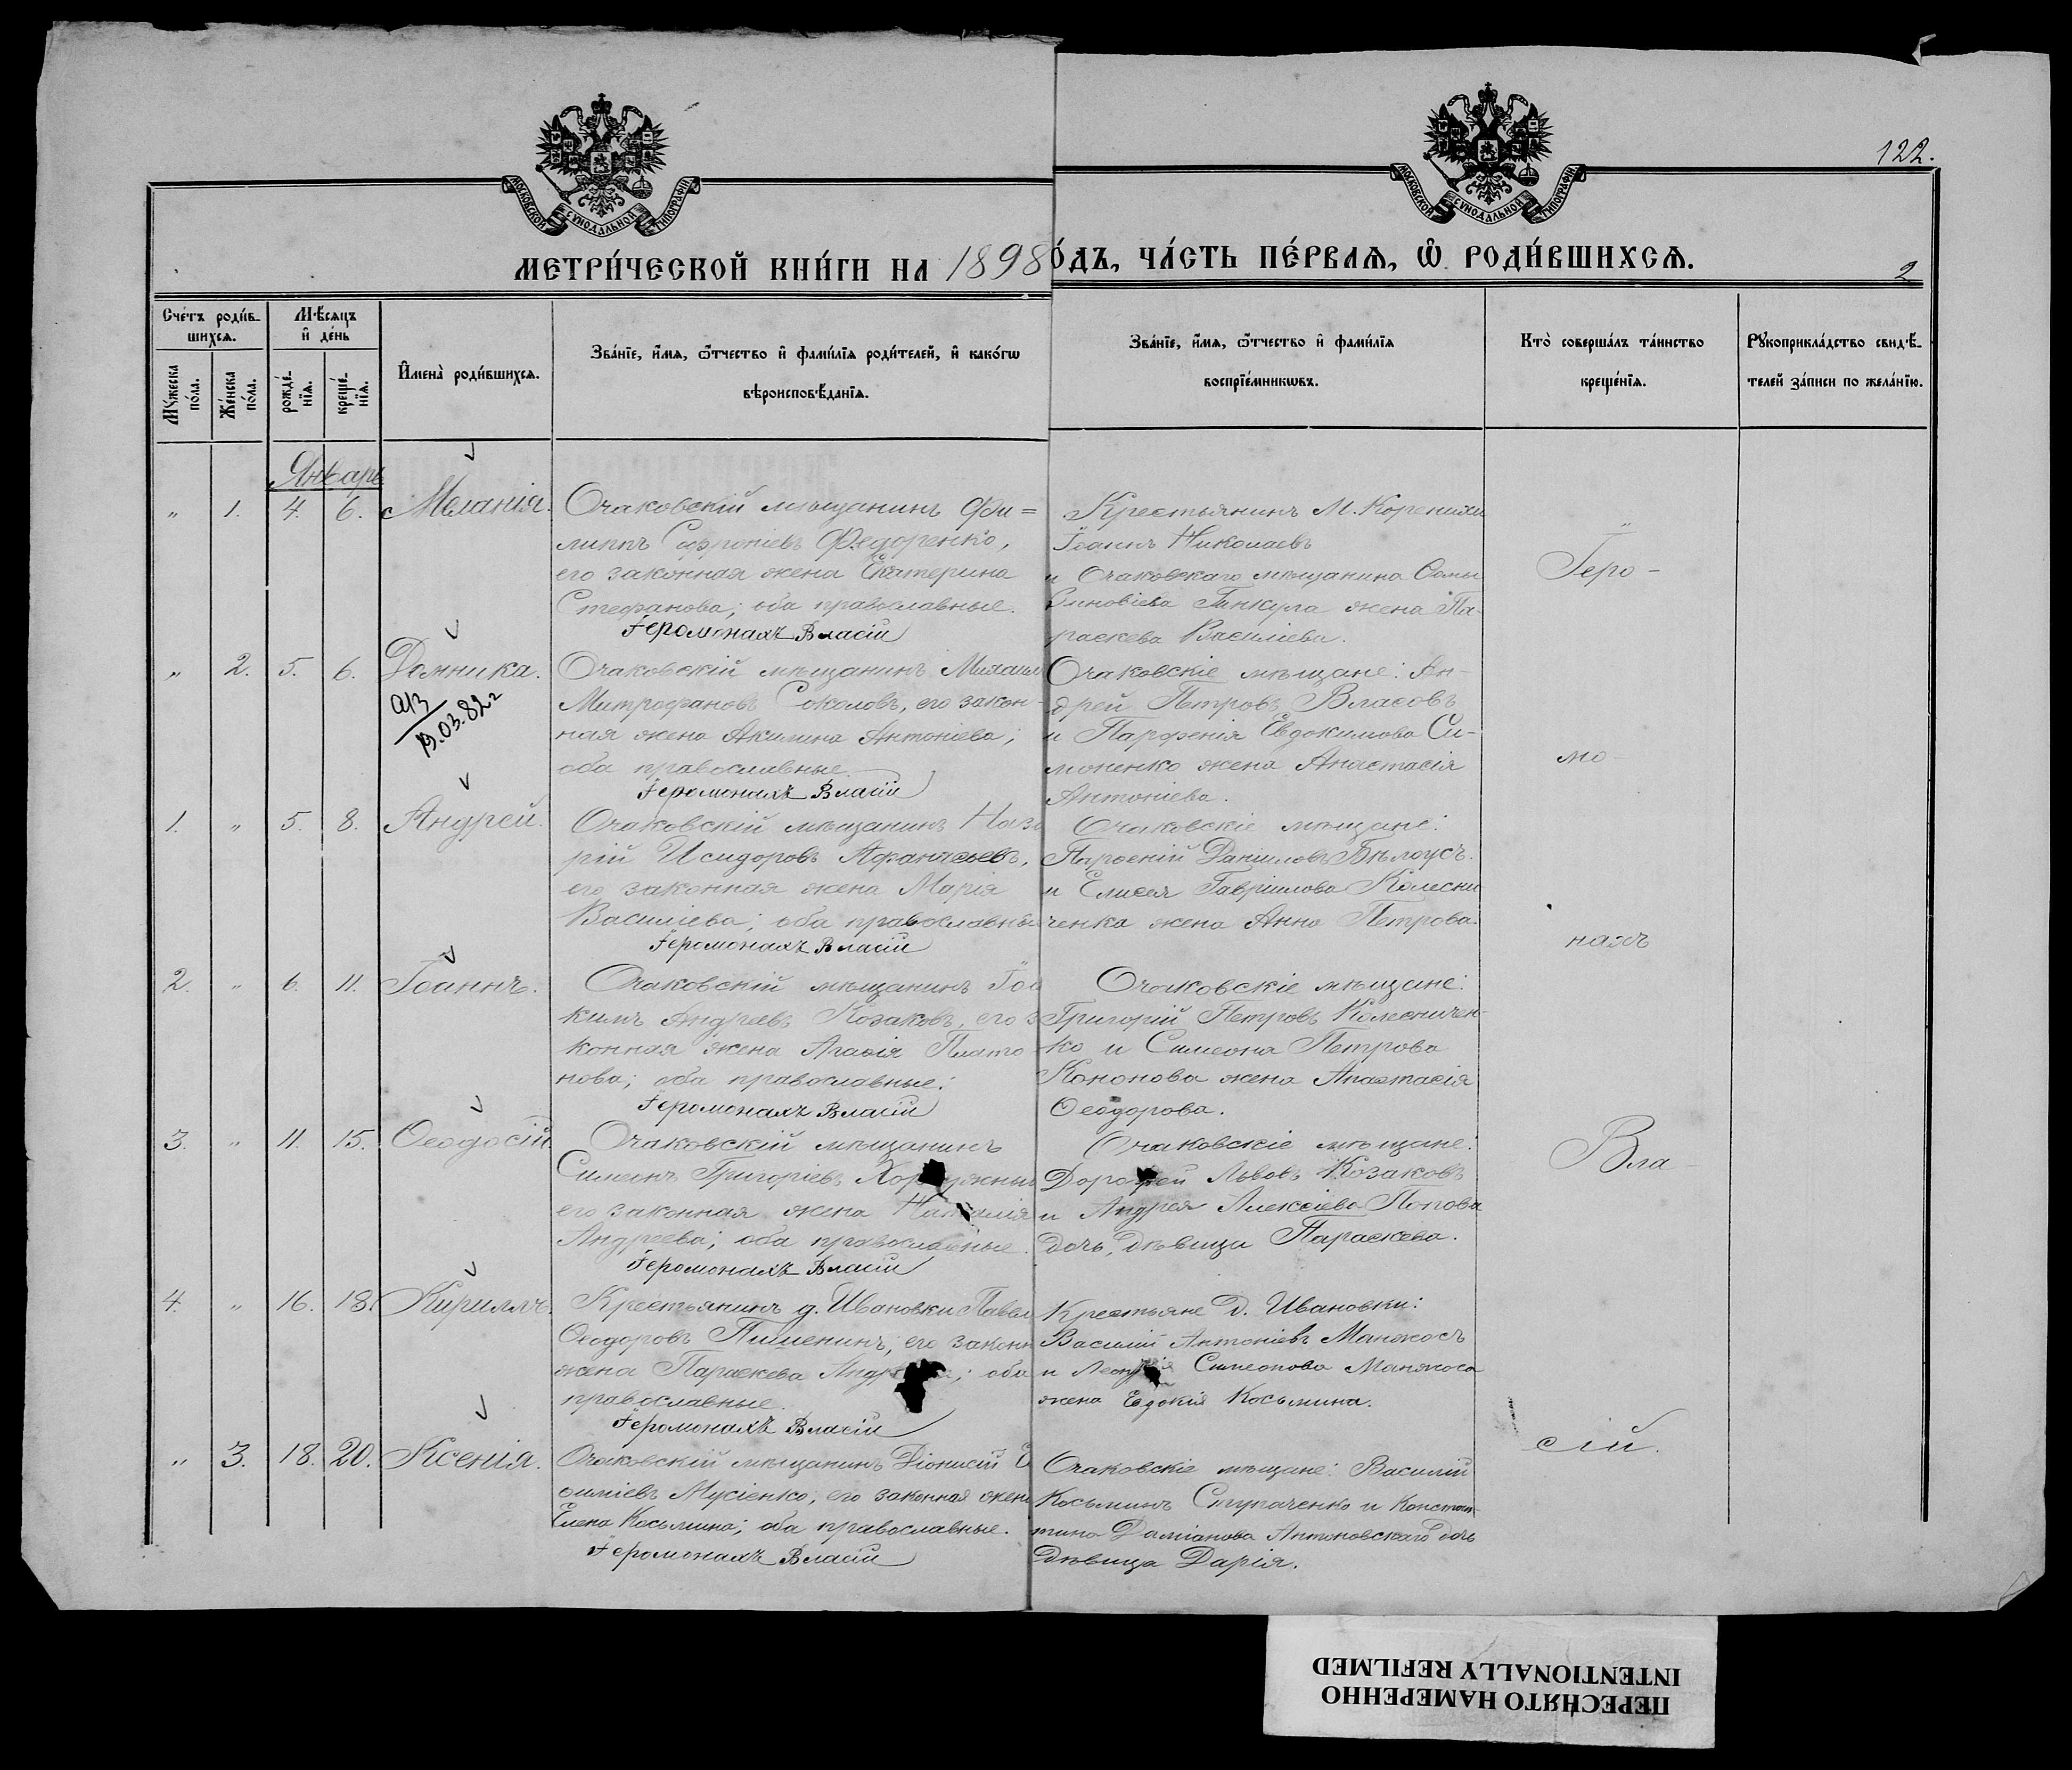 122.
МОСКОВСКОЙ СУНОДАЛЬНОЙ ТИПОГРАФІИ
МОСКОВСКОЙ СУНОДАЛЬНОЙ ТИПОГРАФІИ
МЕТРИ́ЧЕСКОЙ КНИ́ГИ НА 1898 О́ДЪ, ЧА́СТЬ ПЕ́РВАѦ, Ѡ҆ РОДИ́ВШИХСѦ.
2
Сче́тъ роди́в-
шихсѧ.
Мѣ́сѧцъ
и҆ де́нь
Мꙋ́жеска по́ла.
Же́нска по́ла.
рожде́-нїѧ.
креще́-нїѧ.
И҆мена̀ роди́вшихсѧ.
Зва́нїе, и҆́мѧ, ѻ҆́тчество и҆ фами́лїѧ роди́телей, и҆ како́гѡ
вѣроисповѣ́данїѧ.
Зва́нїе, и҆́мѧ, ѻ҆́тчество и҆ фами́лїѧ
воспрїе́мникѡвъ.
Кто̀ соверша́лъ та́инство
креще́нїѧ.
Рꙋкоприкла́дство свидѣ́-
телей за́писи по жела́нїю.
Январь
„ 1. 4. 6. Меланія. Очаковскій мѣщанинъ Фи=
липпъ Софроніевъ Федоренко,
его законная жена Екатерина
Стефанова; оба православные.
Іеромонахъ Власій
Крестьянинъ М. Коренихи
Іоаннъ Николаевъ
и Очаковскаго мѣщанина
Зиновіева жена Па-
раскева Василіева.
Іеро-
„ 2. 5. 6. Домника. Очаковскій мѣщанинъ Михаилъ
Митрофановъ Соколовъ, его закон-
ная жена Акилина Антоніева;
оба православные.
Іеромонахъ Власій
13.03.82г
Очаковскіе мѣщане: Ан-
дрей Петровъ Власовъ
и Парфенія Евдокимова Си-
моненко жена Анастасія
Антоніева.
мо-
1. „ 5. 8. Андрей. Очаковскій мѣщанинъ Наза
рій Исидоровъ Афанасьевъ,
его законная жена Марія
Василіева; оба православны
Іеромонахъ Власій
Очаковскіе мѣщане:
Парѳеній Даніиловъ Бѣлоусъ
и Елисея Гавріилова Колесни
ченка жена Анна Петрова.
нахъ
2. „ 6. 11. Іоаннъ. Очаковскій мѣщанинъ Іоа
кимъ Андреевъ Козаковъ, его з
конная жена Агаѳія Плато-
нова; оба православные.
Іеромонахъ Власій
Очаковскіе мѣщане:
Григорій Петровъ Колесничен-
ко и Симеона Петрова
Кононова жена Анастасія
Ѳеодорова.
3. „ 11. 15. Ѳеодосій. Очаковскій мѣщанинъ
Симеонъ Григоріевъ
его законная жена Наталія
Андреева; оба православные.
Іеромонахъ Власій
Очаковскіе мѣщане:
Дороѳей Львовъ Козаковъ
и Андрея Алексіева Попова
дочь, дѣвица Параскева.
Вла-
4. „ 16. 18. Кириллъ. Крестьянинъ д. Ивановки Павел
Ѳеодоровъ Пименинъ, его законн
жена Параскева; оба
православные.
Іеромонахъ Власій
Крестьяне д. Ивановки:
Василій Антоніевъ Манжосъ
и Симеонова Манжоса
жена Евдокія Косьмина.
сій.
„ 3. 18. 20. Ксенія. Очаковскій мѣщанинъ Діонисій Е
ѳиміевъ Мусіенко, его законная жена
Елена Косьмина; оба православные.
Іеромонахъ Власій
Очаковскіе мѣщане: Василій
Косьминъ Ступаченко и Констан-
тина Даміанова Антоновскаго дочь
дѣвица Дарія.
ПЕРЕСНЯТО НАМЕРЕННО
INTENTIONALLY REFILMED